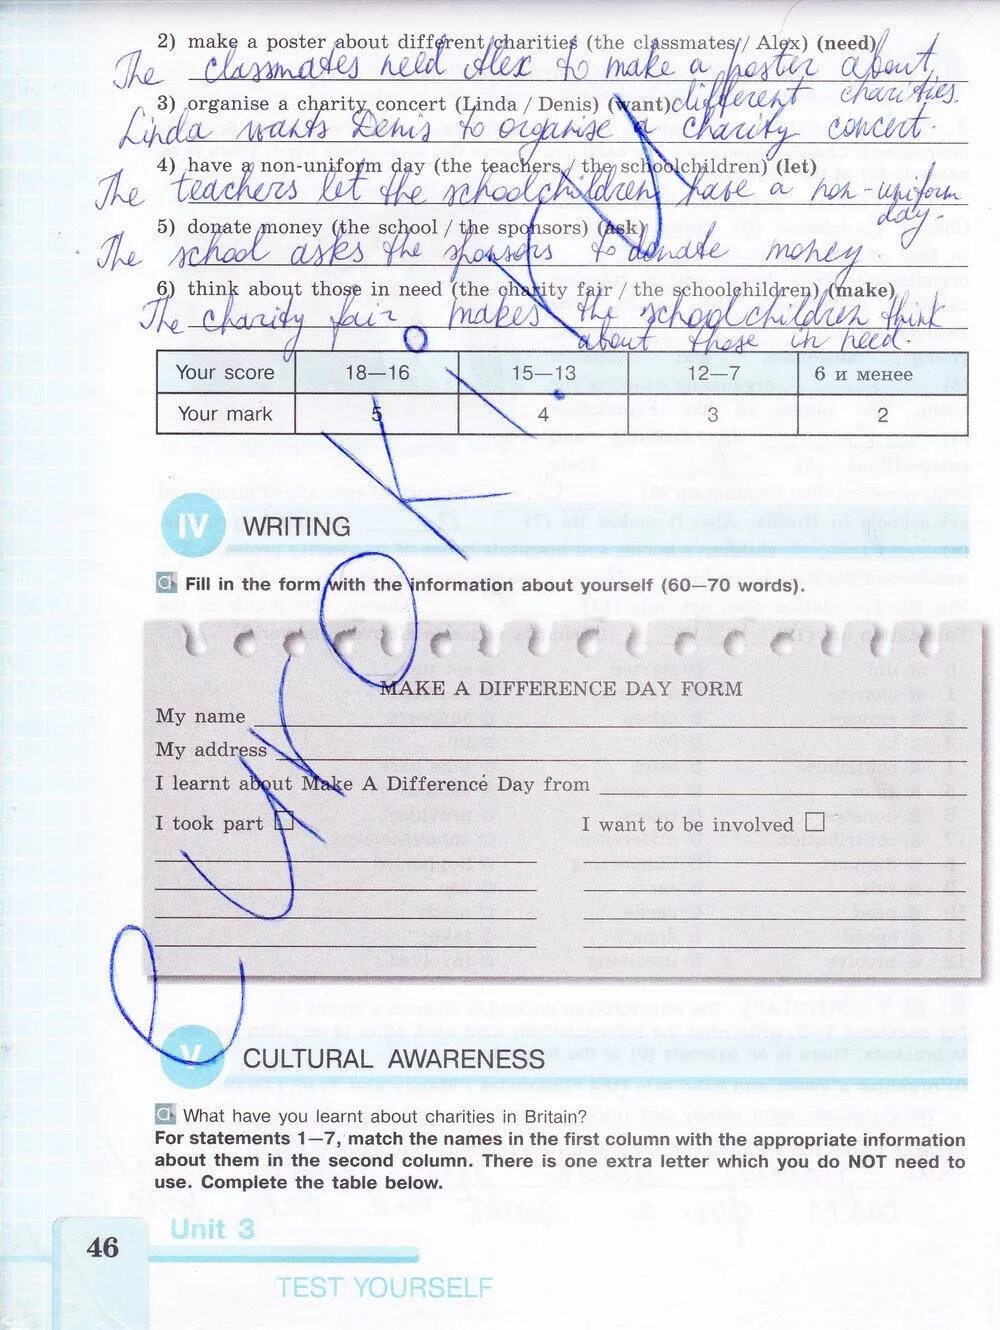 2) make a poster about different charities (the classmates / Alex) (need)
The classmates need Alex to make a poster about
different charities.
3) organise a charity concert (Linda / Denis) (want)
Linda wants Denis to organise a charity concert.
4) have a non-uniform day (the teachers / the schoolchildren) (let)
The teachers let the schoolchildren have a non-uniform
day.
5) donate money (the school / the sponsors) (ask)
The school asks the sponsors to donate money.
6) think about those in need (the charity fair / the schoolchildren) (make)
The charity fair makes the schoolchildren think
about those in need.
Your score 18—16 15—13 12—7 6 и менее
Your mark 5 4 3 2
IV WRITING
a Fill in the form with the information about yourself (60—70 words).
MAKE A DIFFERENCE DAY FORM
My name
My address
I learnt about Make A Difference Day from
I took part I want to be involved
V CULTURAL AWARENESS
a What have you learnt about charities in Britain?
For statements 1—7, match the names in the first column with the appropriate information
about them in the second column. There is one extra letter which you do NOT need to
use. Complete the table below.
Unit 3
46
TEST YOURSELF
euroki.ru